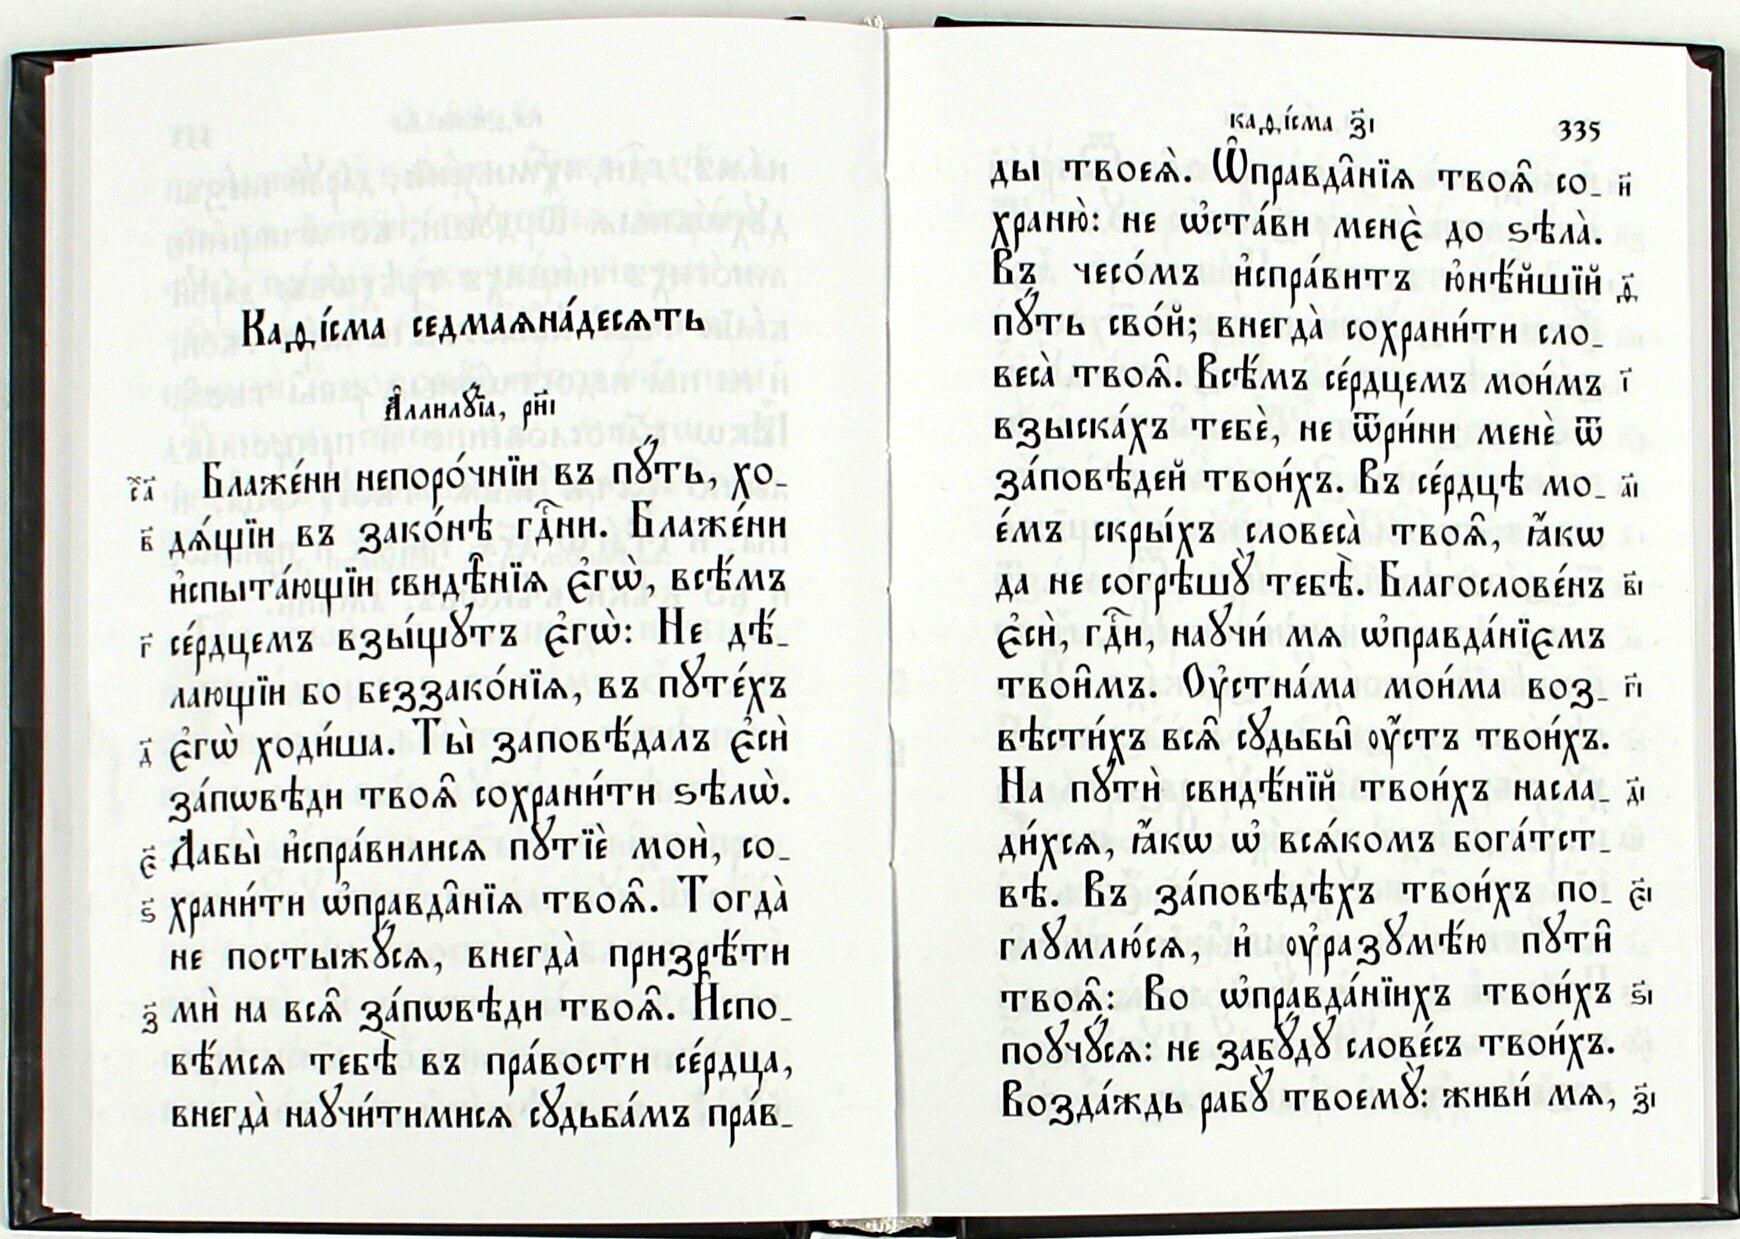 Каѳі́сма седмаѧна́десѧть
А҆ллилꙋ́їа, рн҃і
ст҃а Блаже́ни непоро́чнїи въ пꙋ́ть, хо_
в҃ дѧ́щїи въ зако́нѣ гдⷭ҇ни. Блаже́ни
и҆спыта́ющїи свидѣ̑нїѧ є҆гѡ̀, всѣ́мъ
г҃ се́рдцемъ взы́щꙋтъ є҆гѡ̀: Не дѣ́_
лающїи бо беззако́нїѧ, въ пꙋте́хъ
д҃ є҆гѡ̀ ходи́ша. Ты̀ заповѣ́далъ є҆сѝ
за́пѡвѣди твоѧ̑ сохрани́ти ѕѣлѡ̀.
є҃ Дабы̀ и҆спра́вилисѧ пꙋтїѐ моѝ, со_
ѕ҃ храни́ти ѡ҆правда̑нїѧ твоѧ̑. Тогда̀
не постыжꙋ́сѧ, внегда̀ призрѣ́ти
з҃ мѝ на всѧ̑ за́пѡвѣди твоѧ̑. И҆спо_
вѣ́мсѧ тебѣ̀ въ пра́вости се́рдца,
внегда̀ наꙋчи́тимисѧ сꙋдьба́мъ пра́в_
каѳі́сма з҃і 335
ды твоеѧ̀. Ѡ҆правда̑нїѧ твоѧ̑ со_ и҃
храню̀: не ѡ҆ста́ви менє̀ до ѕѣла̀.
Въ чесо́мъ и҆спра́витъ ю҆нѣ́йшїй ѳ҃
пꙋ́ть сво́й; внегда̀ сохрани́ти сло_
веса̀ твоѧ̑. Всѣ́мъ се́рдцемъ мои́мъ і҃
взыска́хъ тебѐ, не ѿри́ни менѐ ѿ
за́повѣдей твои́хъ. Въ се́рдцѣ мо_ а҃і
е́мъ скры́хъ словеса̀ твоѧ̑, ꙗ҆́кѡ
да не согрѣшꙋ̀ тебѣ̀. Благослове́нъ в҃і
є҆сѝ, гдⷭ҇и, наꙋчи́ мѧ ѡ҆правда́нїємъ
твои̑мъ. Оу҆стна́ма мои́ма воз_ г҃і
вѣсти́хъ всѧ̑ сꙋдьбы̑ оу҆́стъ твои́хъ.
На пꙋтѝ свидѣ́нїй твои́хъ насла_ д҃і
ди́хсѧ, ꙗ҆́кѡ ѡ҆ всѧ́комъ бога́тст_
вѣ. Въ за́повѣдѣхъ твои́хъ по_ є҃і
глꙋмлю́сѧ, и҆ оу҆разꙋмѣ́ю пꙋти̑
твоѧ̑: Во ѡ҆правда́нїихъ твои́хъ ѕ҃і
поꙋчꙋ́сѧ: не забꙋ́дꙋ слове́съ твои́хъ.
Возда́ждь рабꙋ̀ твоемꙋ̀: живи́ мѧ, з҃і